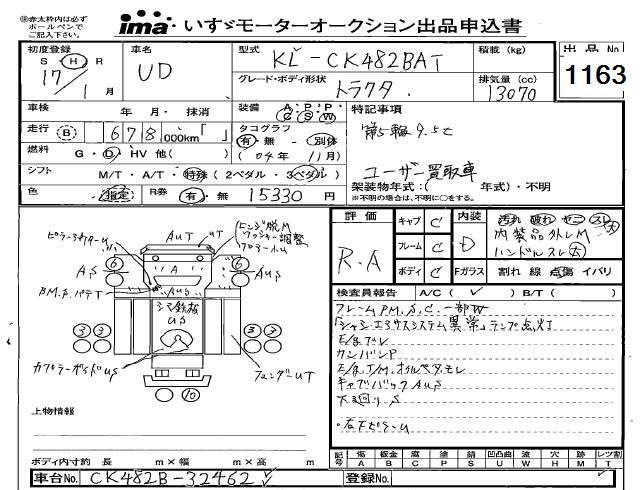 ㊟赤太枠内は必ず
ボールペンで
ご記入下さい。
ima いすゞモーターオークション出品申込書
初度登録 S H R 17/1月
車名 UD
型式 KL-CK482BAT
積載 (kg)
グレード・ボディ形状 トラクタ
排気量 (cc) 13070
出品No 1163
車検 年 月・抹消
装備 A P P C S W
走行 B 678,000km「 」
タコグラフ 有・無 - 別体 (04年11月)
燃料 G・D・HV 他( )
シフト M/T・A/T・特殊(2ペダル・3ペダル)
色 指定
R券 有・無 15330円
特記事項
第5輪9.5t
ユーザー買取車
架装物年式:( 年式)・不明
※不明の場合は、不明に○をする。
評価 R.A
キャブ C
フレーム C
ボディ C
内装 D
Fガラス
汚れ 破れ
内装品外しM
ハンドルスレ大
割れ 線 点傷 イバリ
検査員報告 A/C( ✓ ) B/T( )
フレームPM.S.C.一部W
「シャシエアサスシステム異常」ランプ点灯
E/gブレ
カンバンP
E/g.T/M.オイルベタモレ
キャブバックAUS
下廻りS
右下ピラーU
ピラー3ケ所U
AUT
UT
ヒンジ脱M
ワッシャー調整
フロアーハU
6
6
AS
A
AUS
AUS
BM.S.パテT
シマ鉄板
US
3 3
3 3
カプラーガイドUS
フェンダーUT
10
上物情報
ボディ内寸約 長 m×幅 m×高 m
記号 傷 板金 腐 塗 錆 凹凸曲 波 穴 外 レツ割
A B C P S U W H M T
車台No. CK482B-32462 ✓
登録No.